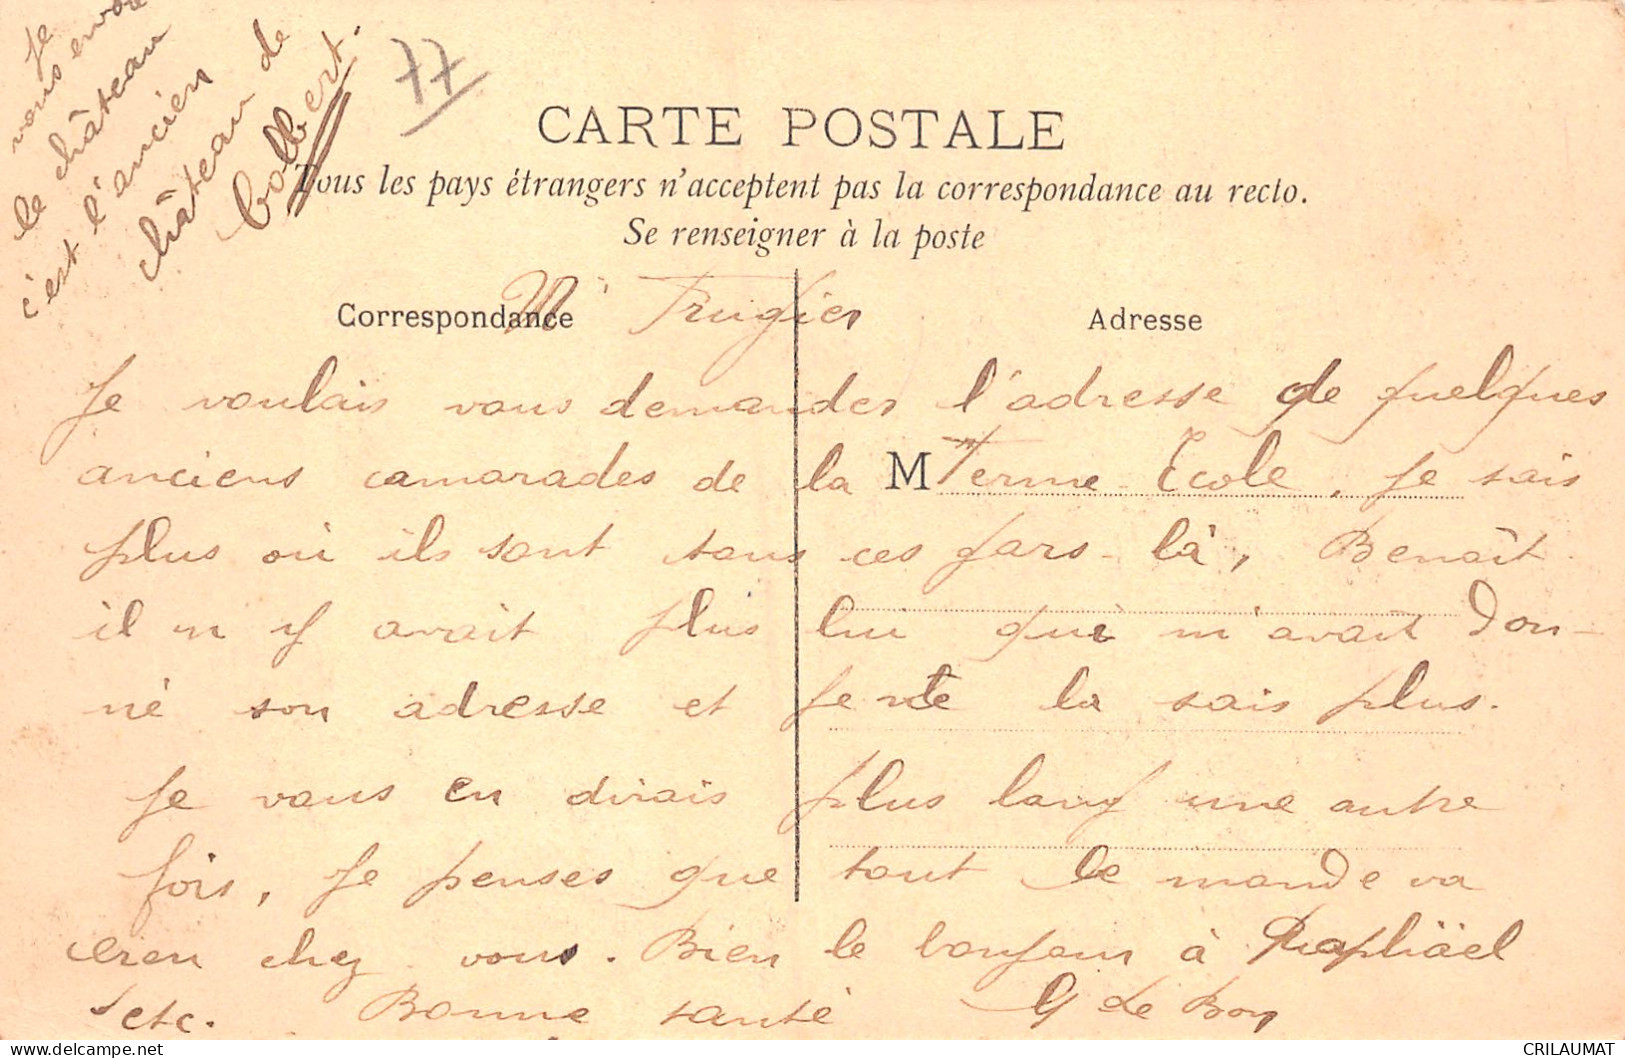 Je
vous envoie
le château
c'est l'ancien
château de
Colbert.
77
CARTE POSTALE
Tous les pays étrangers n'acceptent pas la correspondance au recto.
Se renseigner à la poste
Correspondance
Adresse
Mr Frugier
Je voulais vous demander l'adresse de quelques
anciens camarades de la Ferme-Ecole, je sais
M
plus où ils sont tous ces gars-là, Benoît
il n'y avait plus lui qui m'avait don-
né son adresse et je ne la sais plus.
Je vous en dirais plus long une autre
fois, Je penses que tout le monde va
bien chez vous. Bien le bonjour à Raphäel
etc. Bonne santé G Le Bon
CRILAUMAT